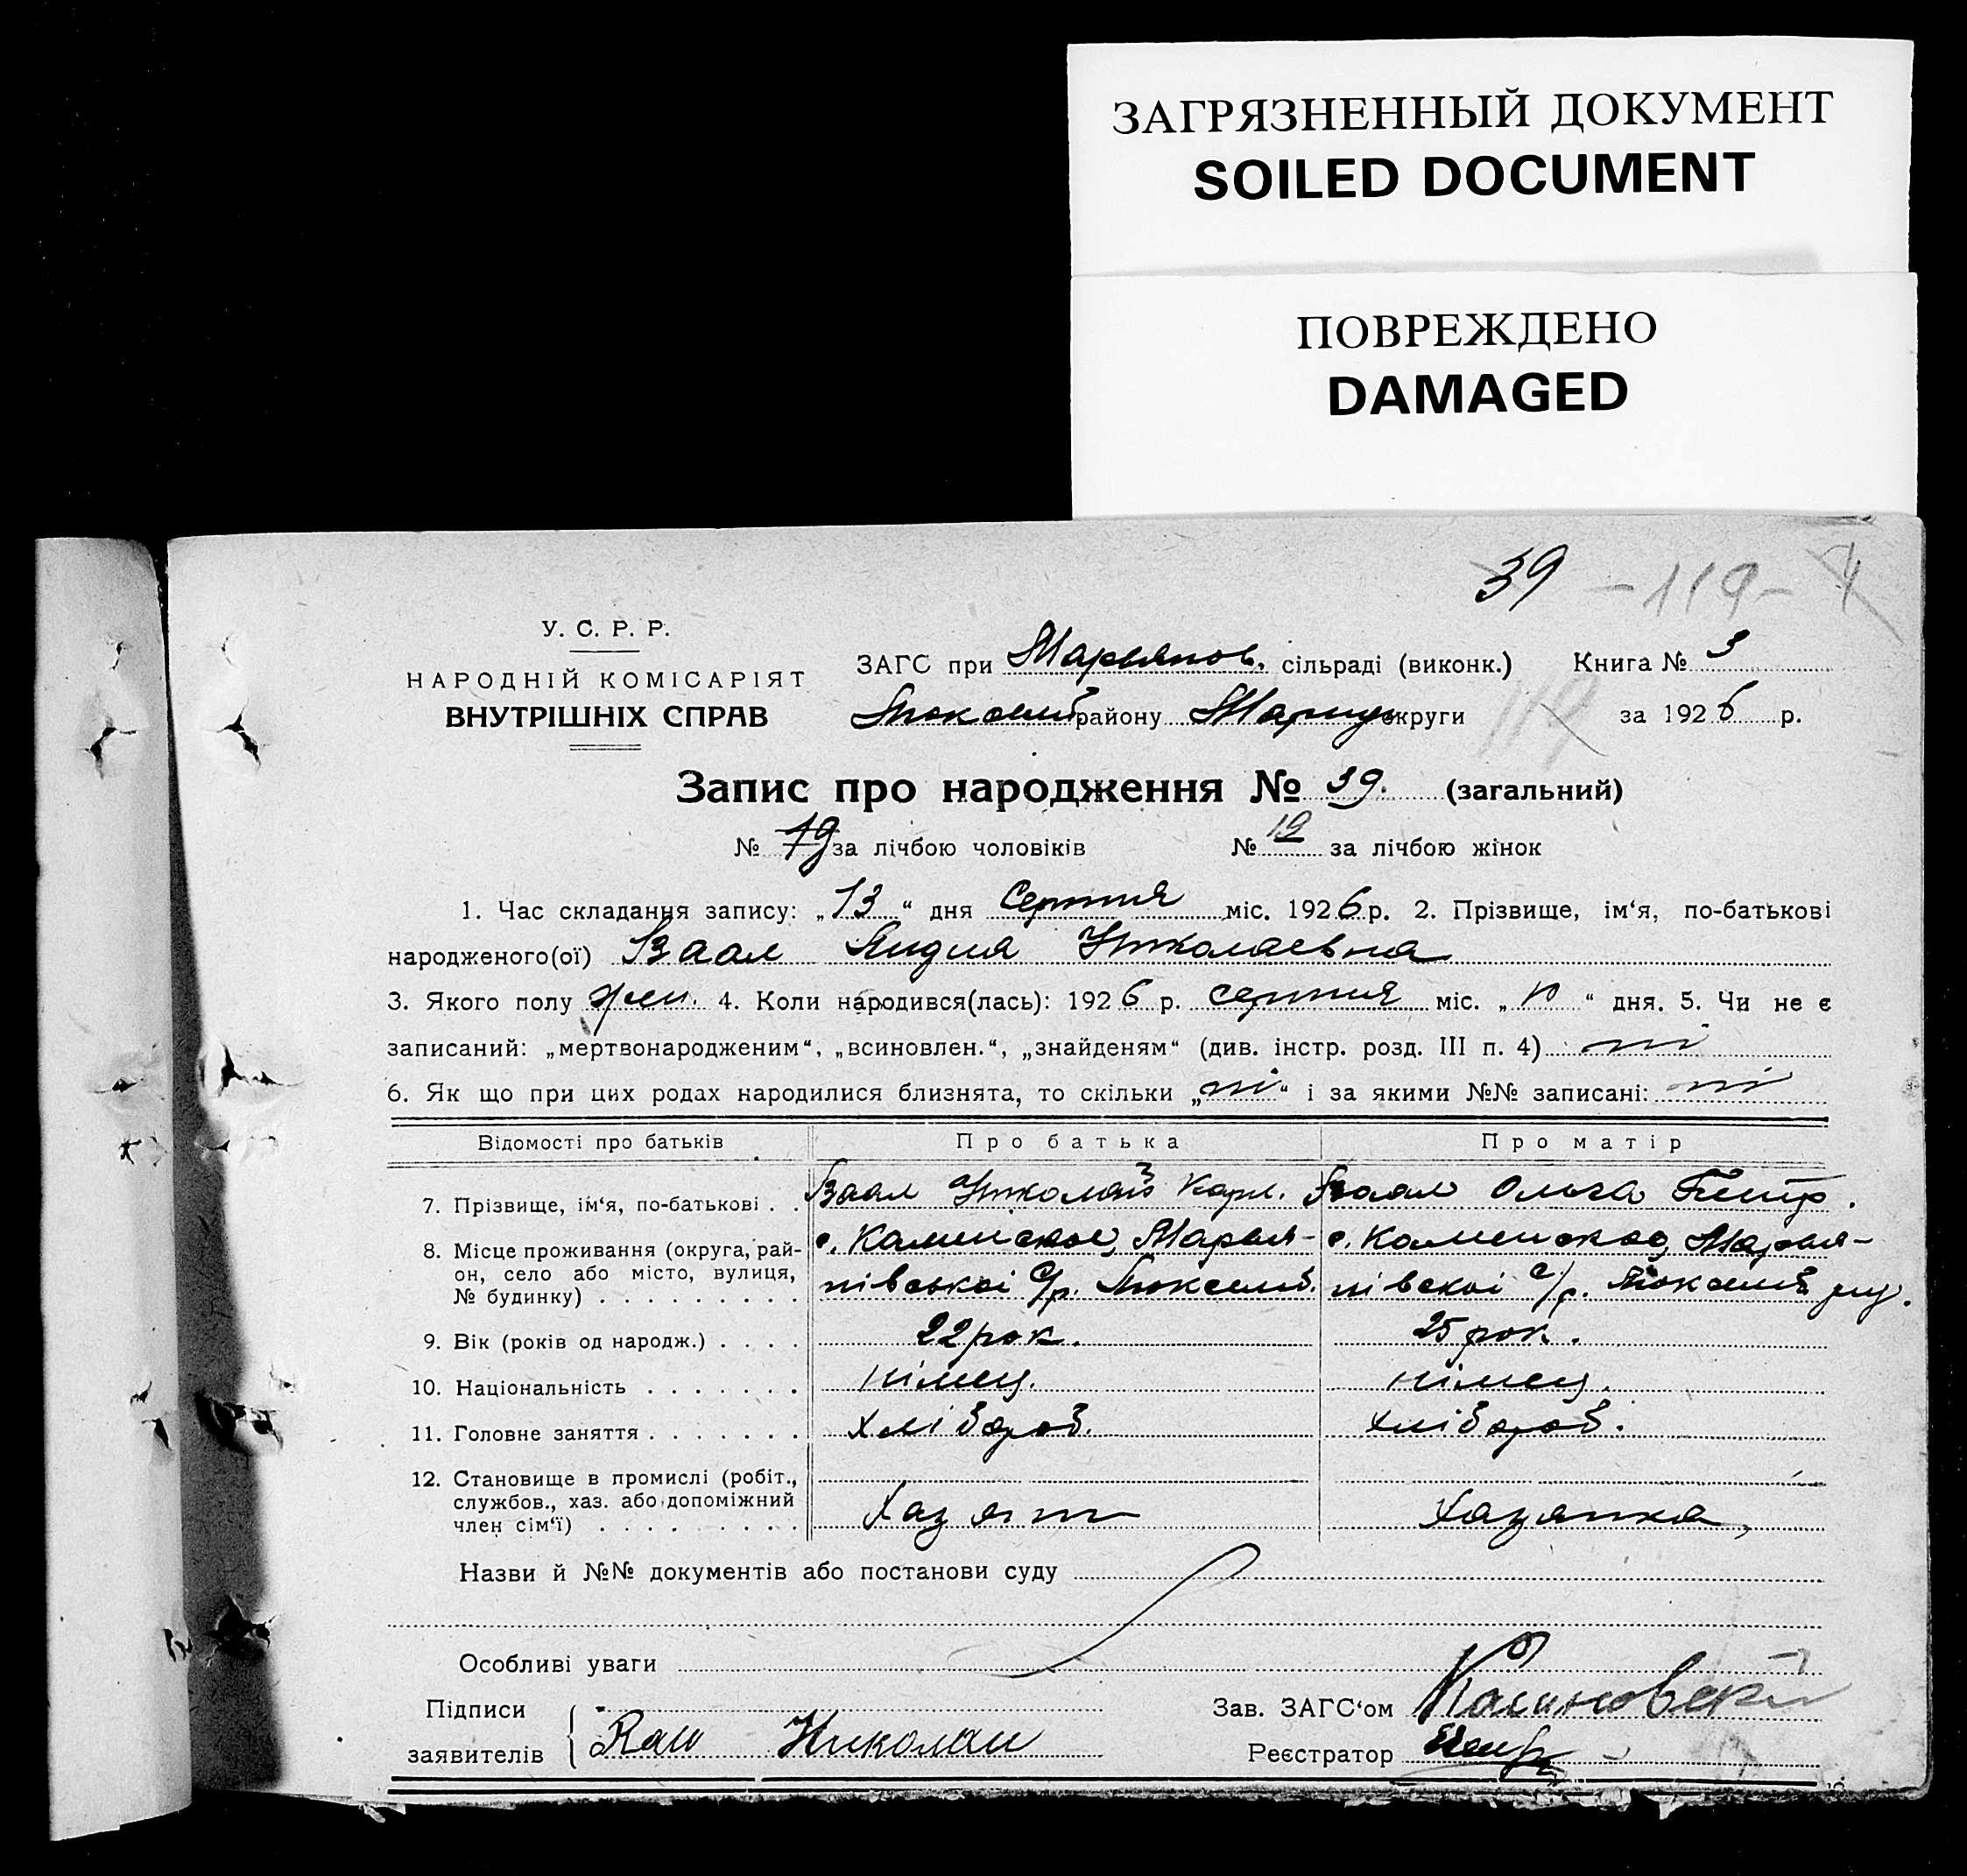 ЗАГРЯЗНЕННЫЙ ДОКУМЕНТ
SOILED DOCUMENT
ПОВРЕЖДЕНО
DAMAGED
39 -119-
У. С. Р. Р.
НАРОДНІЙ КОМІСАРІЯТ
ВНУТРІШНІХ СПРАВ
ЗАГС при Марьянов. сільраді (виконк.) Книга № 3
району округи 119 за 1926 р.
Запис про народження № 39. (загальний)
№ 19 за лічбою чоловіків № 19 за лічбою жінок
1. Час складання запису: „13“ дня Серпня міс. 1926 р. 2. Прізвище, ім‘я, по-батькові
народженого(ої) Ваал Лидия Николаевна
3. Якого полу жен. 4. Коли народився(лась): 1926 р. серпня міс. „ “ дня. 5. Чи не є
записаний: „мертвонародженим“, „всиновлен.“, „знайденям“ (див. інстр. розд. III п. 4) ні
6. Як що при цих родах народилися близнята, то скільки „ні“ і за якими №№ записані: ні
Відомості про батьків Про батька Про матір
7. Прізвище, ім‘я, по-батькові . . Ваал Николай Карл. Ваал Ольга Петр.
8. Місце проживання (округа, рай- с. Каменское, Марья- с. Каменское, Марья-
он, село або місто, вулиця, нівської с/р. нівскої с/р.
№ будинку) . . . . . . . . .
9. Вік (років од народж.) . . . . 22 рок. 25 рок.
10. Національність . . . . . . . німец. німец.
11. Головне заняття . . . . . . . хлібороб. хлібороб.
12. Становище в промислі (робіт.,
службов., хаз. або допоміжний Хазяин Хазяйка,
член сім‘ї) . . . . . . . . .
Назви й №№ документів або постанови суду
Особливі уваги
Підписи Зав. ЗАГС‘ом Калиновский
заявителів Николаи Реєстратор